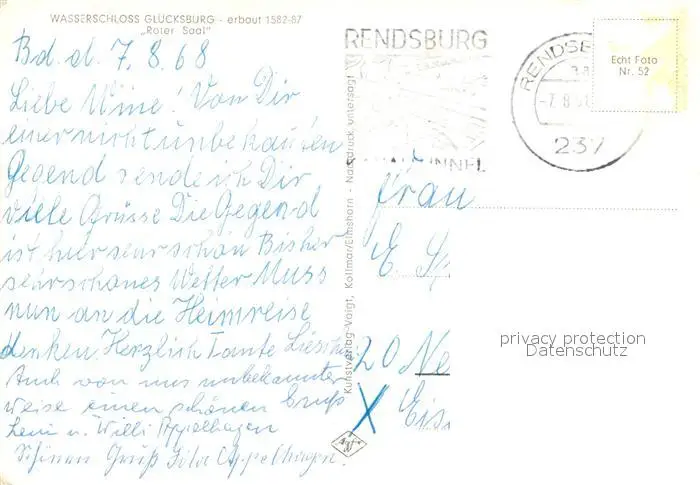 WASSERSCHLOSS GLÜCKSBURG - erbaut 1582-87
„Roter Saal"
Bd. d. 7. 8. 68
Liebe Mine! Von Dir
einer nicht unbekannten
Gegend sende ich Dir
viele Grüsse Die Gegend
ist hier sear schön Bisher
sear schönes Wetter Muss
nun an die Heimreise
denken. Herzlich Tante Lieschen
Auch von uns unbekannter
weise einen schönen Gruß
Leni u. Willi Appelhagen
Schönen Gruß Appelhagen.
Kunstverlag-Voigt, Kollmar/Elmshorn - Nachdruck untersagt
RENDSBURG
RENDSB
-7.8.
237
Echt Foto
Nr. 52
Frau
E. Sp
20 Ne
X Eis
privacy protection
Datenschutz